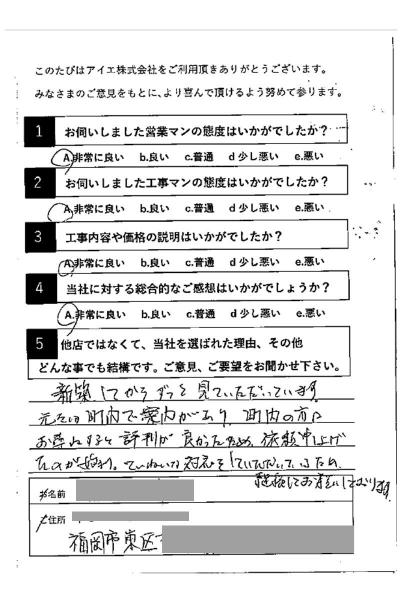 このたびはアイエ株式会社をご利用頂きありがとうございます。
みなさまのご意見をもとに、より喜んで頂けるよう努めて参ります。
1 お伺いしました営業マンの態度はいかがでしたか？
A.非常に良い b.良い c.普通 d 少し悪い e.悪い
2 お伺いしました工事マンの態度はいかがでしたか？
A.非常に良い b.良い c.普通 d 少し悪い e.悪い
3 工事内容や価格の説明はいかがでしたか？
A.非常に良い b.良い c.普通 d 少し悪い e.悪い
4 当社に対する総合的なご感想はいかがでしょうか？
A.非常に良い b.良い c.普通 d.少し悪い e.悪い
5 他店ではなくて、当社を選ばれた理由、その他
どんな事でも結構です。ご意見、ご要望をお聞かせ下さい。
新築してからずっと見ていただいています。
元々は町内で案内があり、町内の方に
お尋ねすると評判が良かったため、依頼申し上げ
たのが始り。ていねいな対応をしていただいているため、
継続してお願いしております。
お名前
ご住所
福岡市東区